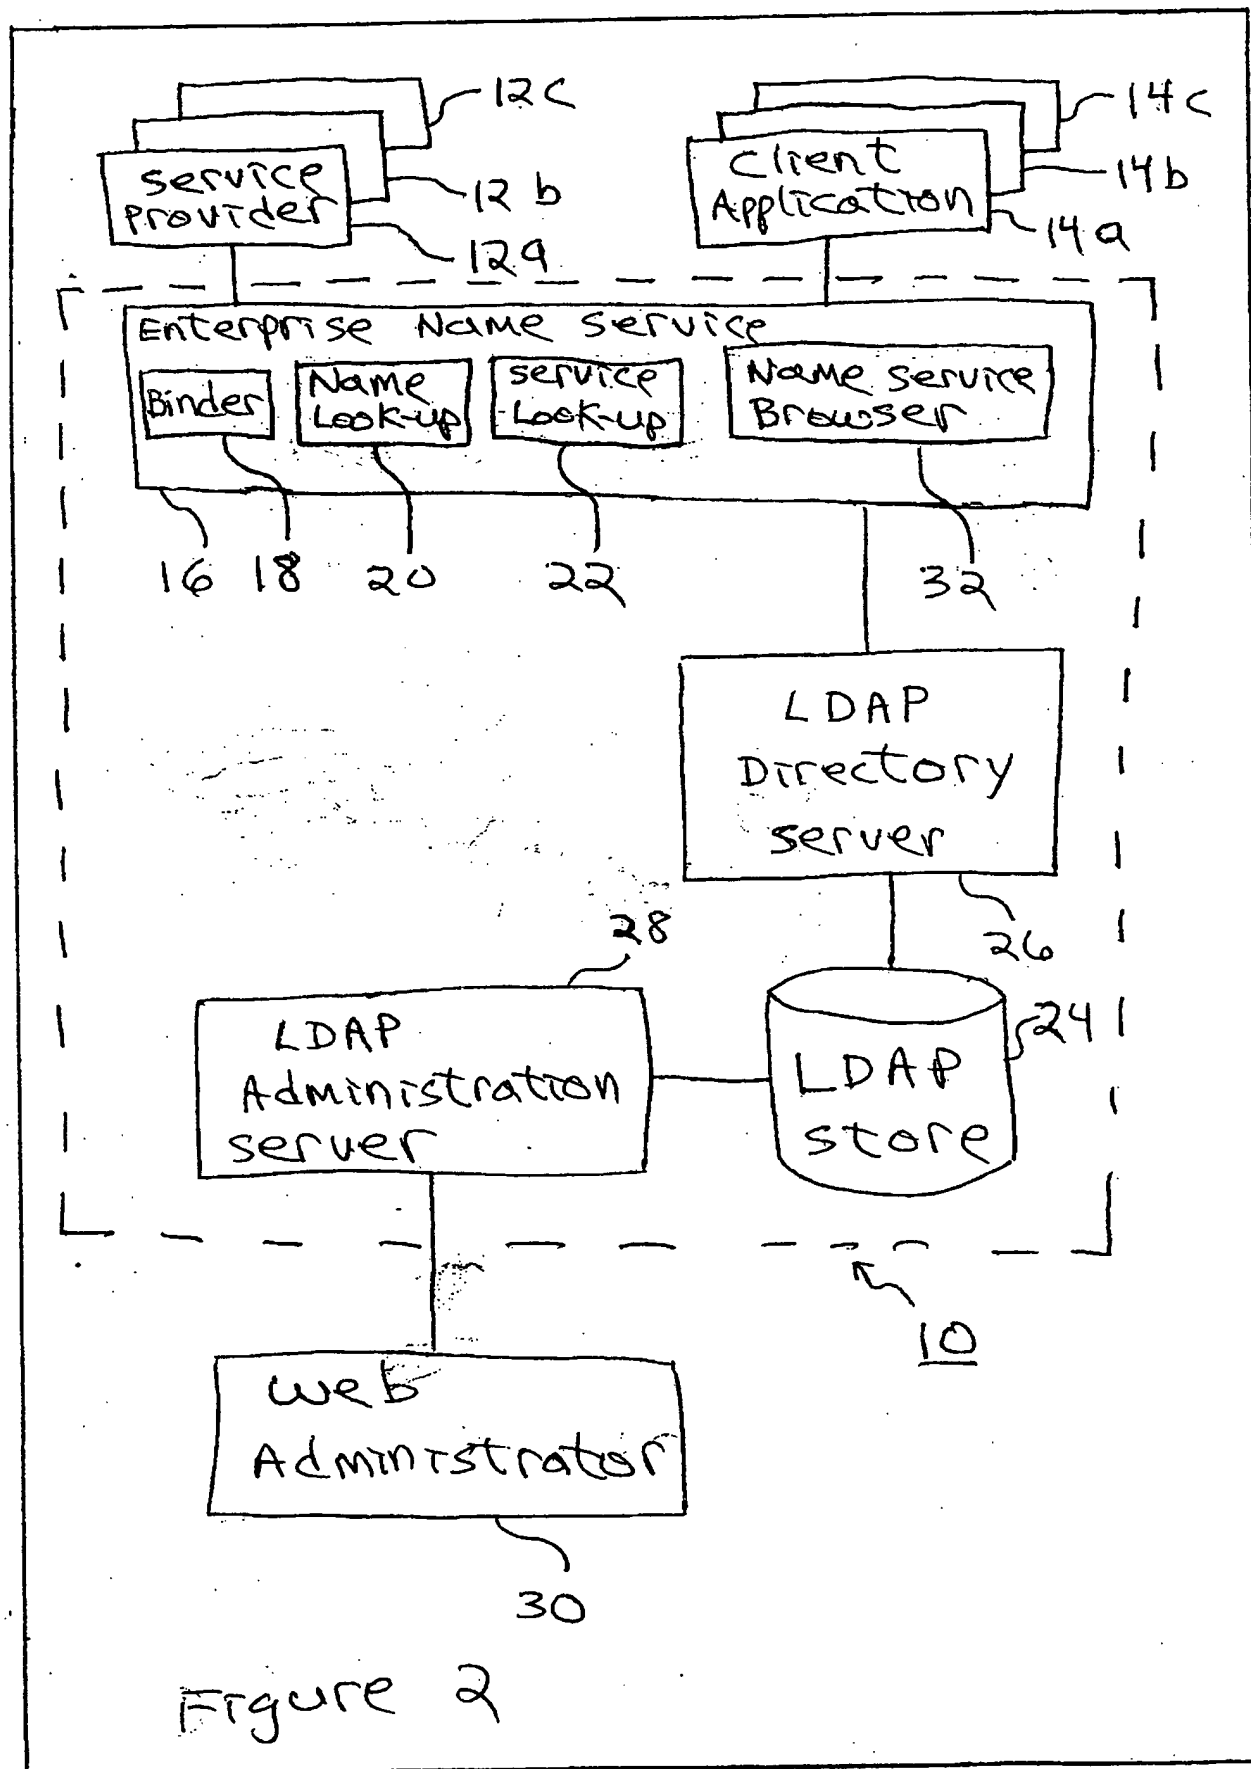 12c
14c
service
Provider
12b
Client
Application
14b
12a
14a
Enterprise Name Service
Binder
Name
Look-up
service
Look-up
Name Service
Browser
16
18
20
22
32
LDAP
Directory
server
28
26
LDAP
Administration
server
24
LDAP
store
10
web
Administrator
30
Figure 2